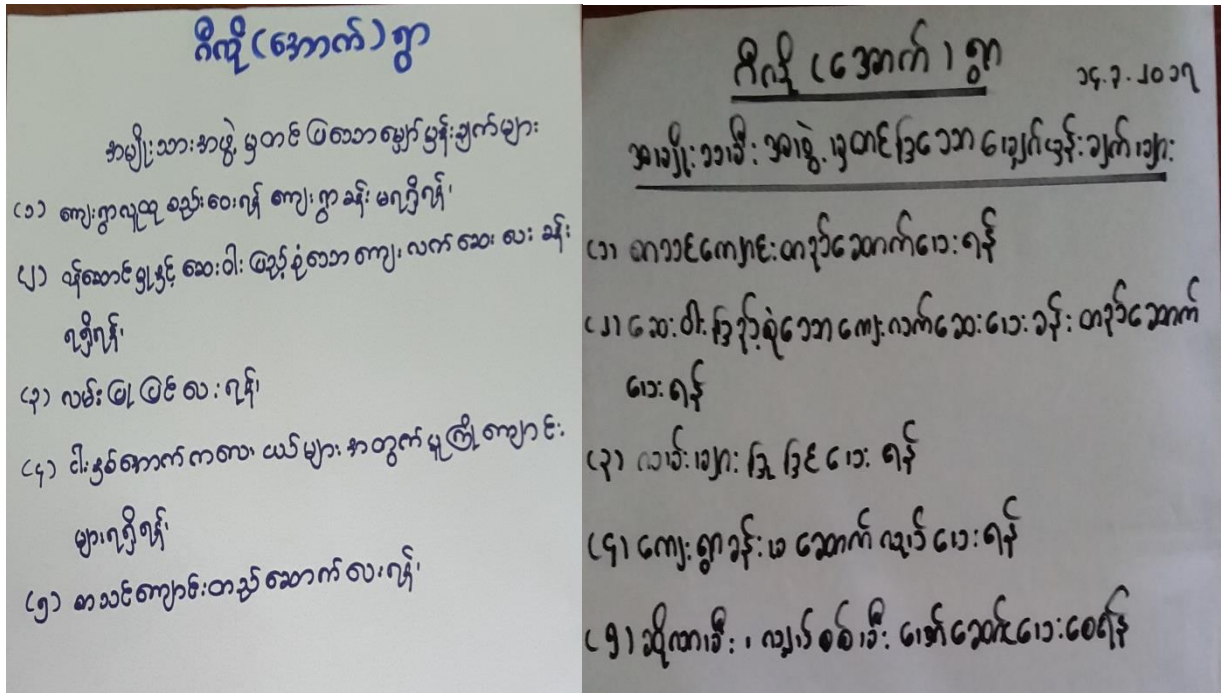 ဂီလို (အောက်) ရွာ
အမျိုးသားအဖွဲ့မှတင်ပြသောမျှော်မှန်းချက်များ
(၁) ကျေးရွာလူထု စည်းဝေးရန် ကျေးရွာခန်းမရရှိရန်၊
(၂) ဝန်ဆောင်မှုနှင့် ဆေးဝါးပြည့်စုံသောကျေးလက်ဆေးပေးခန်း
ရရှိရန်၊
(၃) လမ်းပြုပြင်ပေးရန်၊
(၄) ငါးနှစ်အောက်ကလေးငယ်များအတွက်မူကြိုကျောင်း
များရရှိရန်၊
(၅) စာသင်ကျောင်းတည်ဆောက်ပေးရန်၊
ဂီလို (အောက်) ရွာ
၁၄.၃.၂၀၁၇
အမျိုးသမီးအဖွဲ့မှတင်ပြသောမျှော်မှန်းချက်များ
(၁) စာသင်ကျောင်းတည်ဆောက်ပေးရန်
(၂) ဆေးဝါးပြည့်စုံသောကျေးလက်ဆေးပေးခန်းတည်ဆောက်
ပေးရန်
(၃) လမ်းများပြုပြင်ပေးရန်
(၄) ကျေးရွာခန်းမဆောက်လုပ်ပေးရန်
(၅) ဆိုလာမီး၊ လျှပ်စစ်မီး ပေးစေရန်